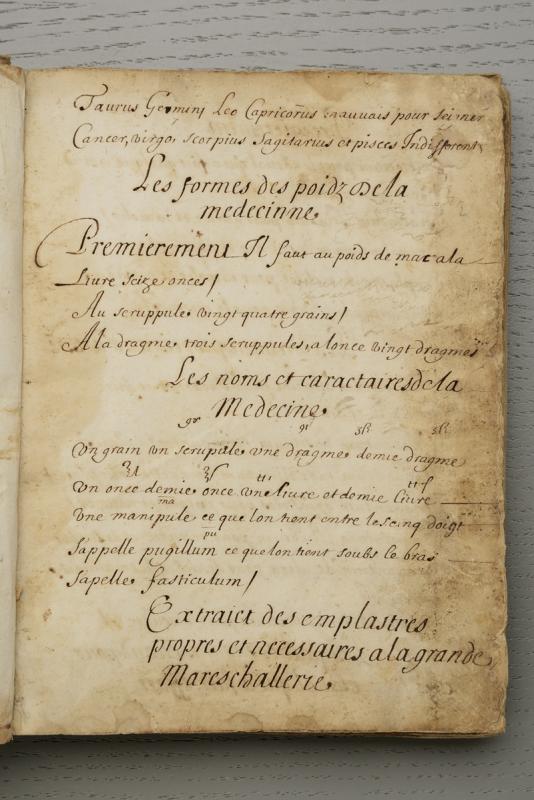 Taurus Gemini Leo Capricornus mauvais pour seimer
Cancer, virgo, scorpius Sagitarius et pisces Indifferent
Les formes des poidz De la
medecinne
Premierement Il faut au poids de marc a la
Livre seize onces /
Au scruppule vingt quatre grains /
A la dragme trois scruppules, a lonce vingt dragmes
Les noms et caractaires de la
Medecine
gr gr
Vn grain vn scrupule vne dragme demie dragme
Vn once demie once vne livre et demie livre
ma
Vne manipule ce que lon tient entre les cinq doigt
pu
Sappelle pugillum ce que lon tient soubs le bras
sapelle fasticulum /
Extraict des emplastres
propres et necessaires a la grande
Mareschallerie